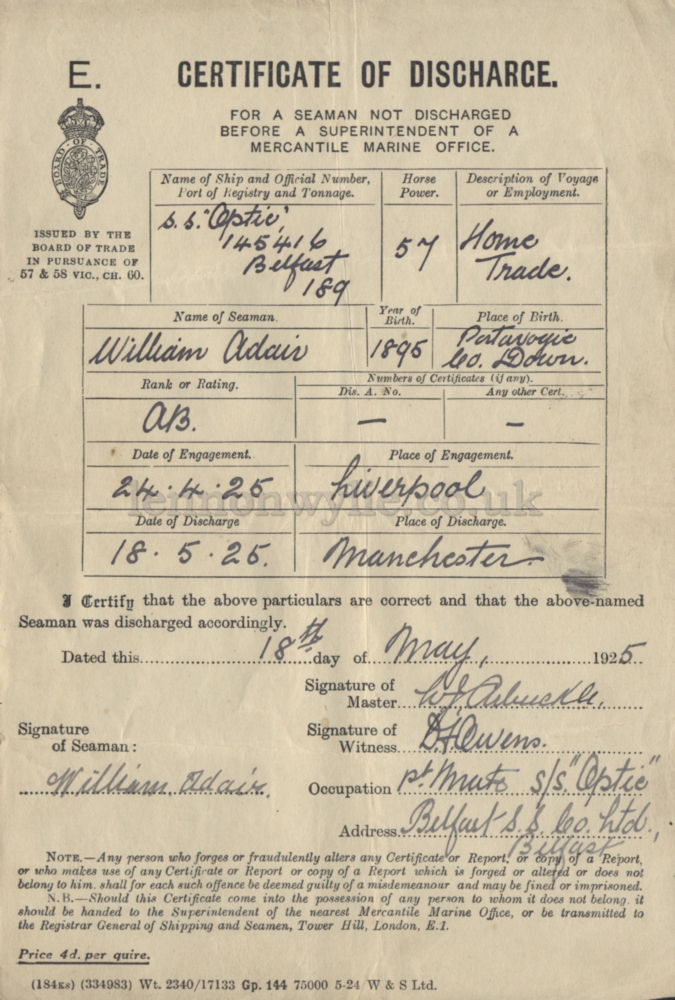 E. CERTIFICATE OF DISCHARGE.
FOR A SEAMAN NOT DISCHARGED
BEFORE A SUPERINTENDENT OF A
MERCANTILE MARINE OFFICE.
BOARD · OF · TRADE
ISSUED BY THE
BOARD OF TRADE
IN PURSUANCE OF
57 & 58 VIC., CH. 60.
Name of Ship and Official Number,
Port of Registry and Tonnage.
Horse
Power.
Description of Voyage
or Employment.
S.S. "Optic"
145416
Belfast
189
57
Home
Trade.
Name of Seaman.
Year of
Birth.
Place of Birth.
William Adair
1895
Portavogie
Co. Down.
Rank or Rating.
Numbers of Certificates (if any).
Dis. A. No.
Any other Cert.
AB.
—
—
Date of Engagement.
Place of Engagement.
24.4.25
Liverpool
lennonwylie.co.uk
Date of Discharge
Place of Discharge.
18.5.25.
Manchester
I Certify that the above particulars are correct and that the above-named
Seaman was discharged accordingly.
Dated this 18th day of May, 1925
Signature of
Master W J Arbuckle.
Signature
of Seaman:
William Adair.
Signature of
Witness Owens.
Occupation 1st Mate S/S "Optic"
Address Belfast S.S. Co. Ltd.,
Belfast
NOTE.—Any person who forges or fraudulently alters any Certificate or Report, or copy of a Report,
or who makes use of any Certificate or Report or copy of a Report which is forged or altered or does not
belong to him. shall for each such offence be deemed guilty of a misdemeanour and may be fined or imprisoned.
N.B.—Should this Certificate come into the possession of any person to whom it does not belong. it
should be handed to the Superintendent of the nearest Mercantile Marine Office, or be transmitted to
the Registrar General of Shipping and Seamen, Tower Hill, London, E.1.
Price 4d. per quire.
(184Ks) (334983) Wt. 2340/17133 Gp. 144 75000 5-24 W & S Ltd.